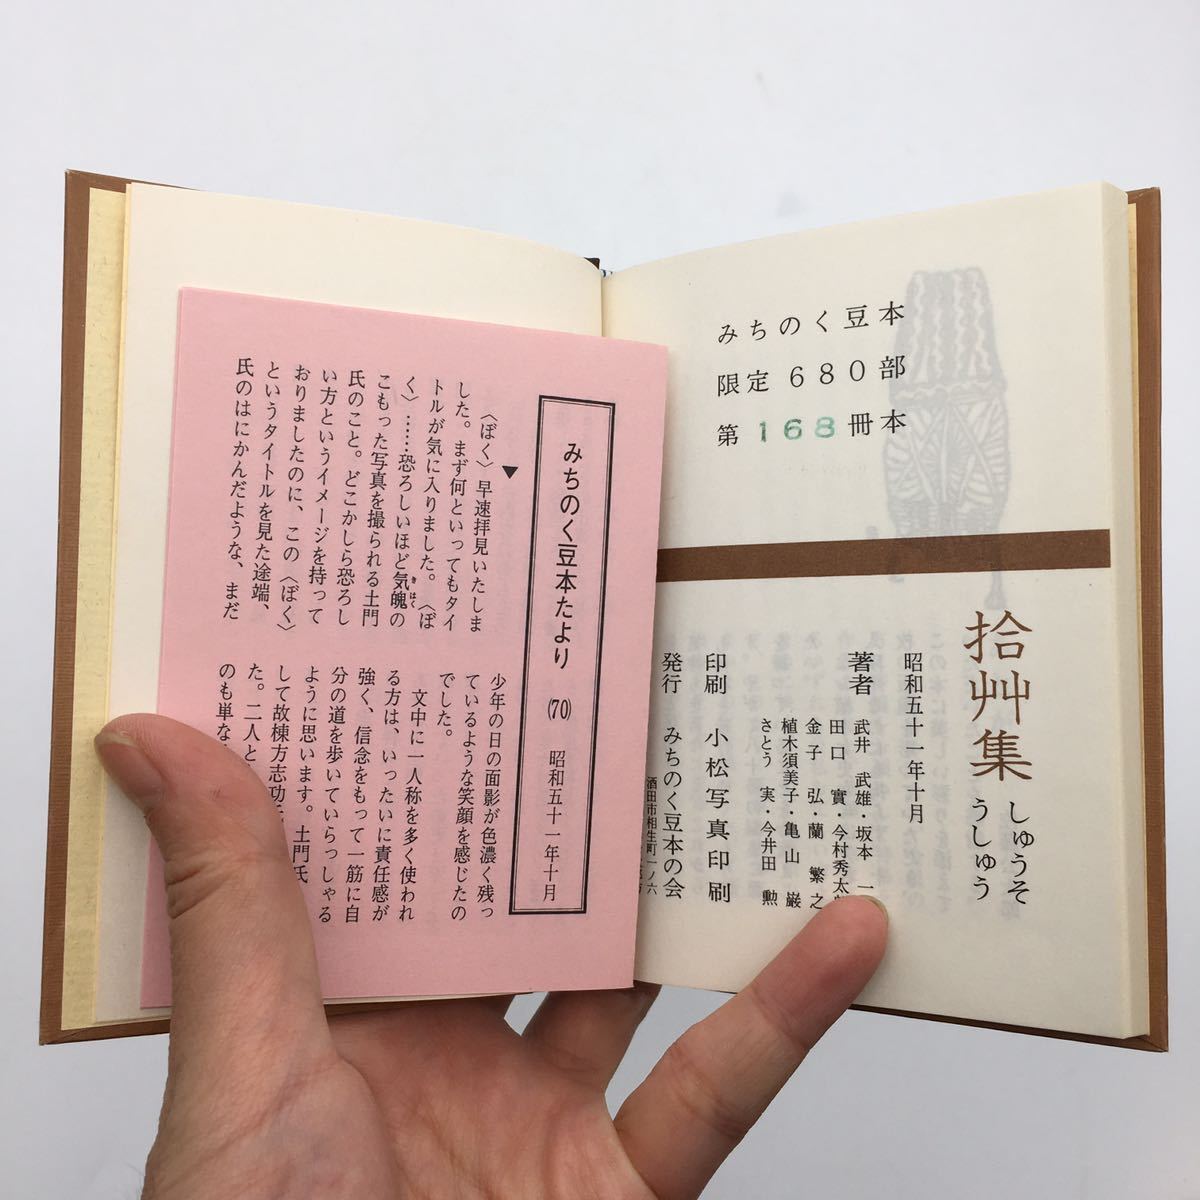 みちのく豆本
限定680部
第168冊本
拾艸集
しゅうそ
うしゅう
昭和五十一年十月
著者
武井 武雄・坂本 一
田口 實・今村秀太
金子 弘・蘭 繁之
植木須美子・亀山 巌
さとう 実・今井田 勲
印刷 小松写真印刷
発行 みちのく豆本の会
酒田市相生町一ノ六
みちのく豆本たより (70) 昭和五十一年十月
▼
〈ぼく〉早速拝見いたしま
した。まず何といってもタイ
トルが気に入りました。〈ぼ
く〉……恐ろしいほど気魄の
きはく
こもった写真を撮られる土門
氏のこと。どこかしら恐ろし
い方というイメージを持って
おりましたのに、この〈ぼく〉
というタイトルを見た途端、
氏のはにかんだような、まだ
少年の日の面影が色濃く残っ
ているような笑顔を感じたの
でした。
文中に一人称を多く使われ
る方は、いったいに責任感が
強く、信念をもって一筋に自
分の道を歩いていらっしゃる
ように思います。土門氏
して故棟方志功
た。二人と
のも単な